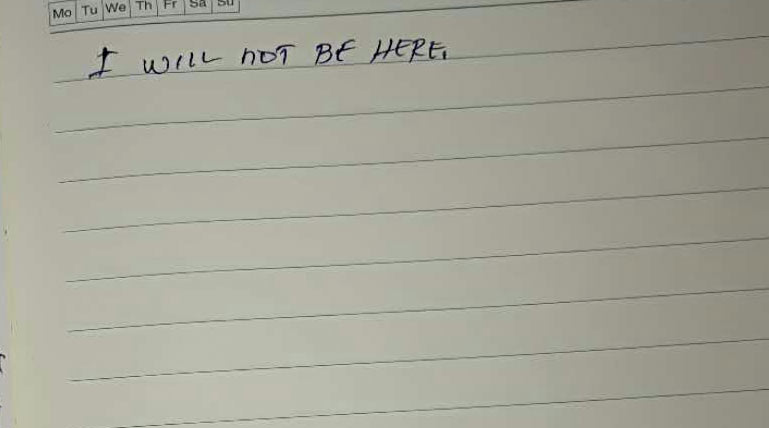 Mo Tu We Th Fr Sa Su
I WILL NOT BE HERE,